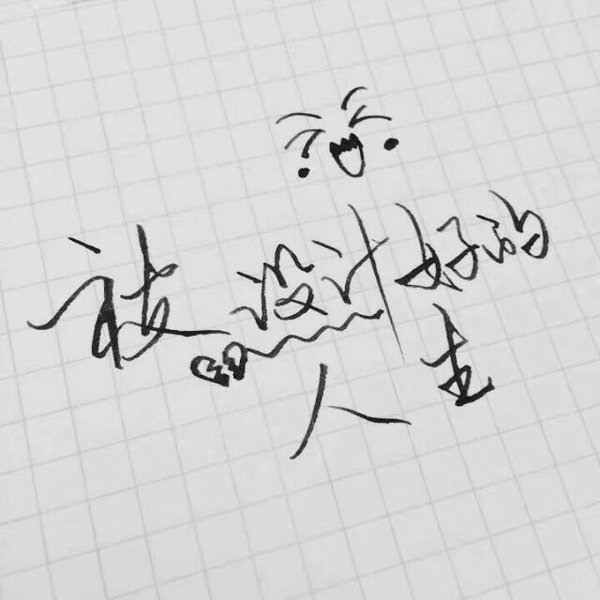 被设计好的
人生